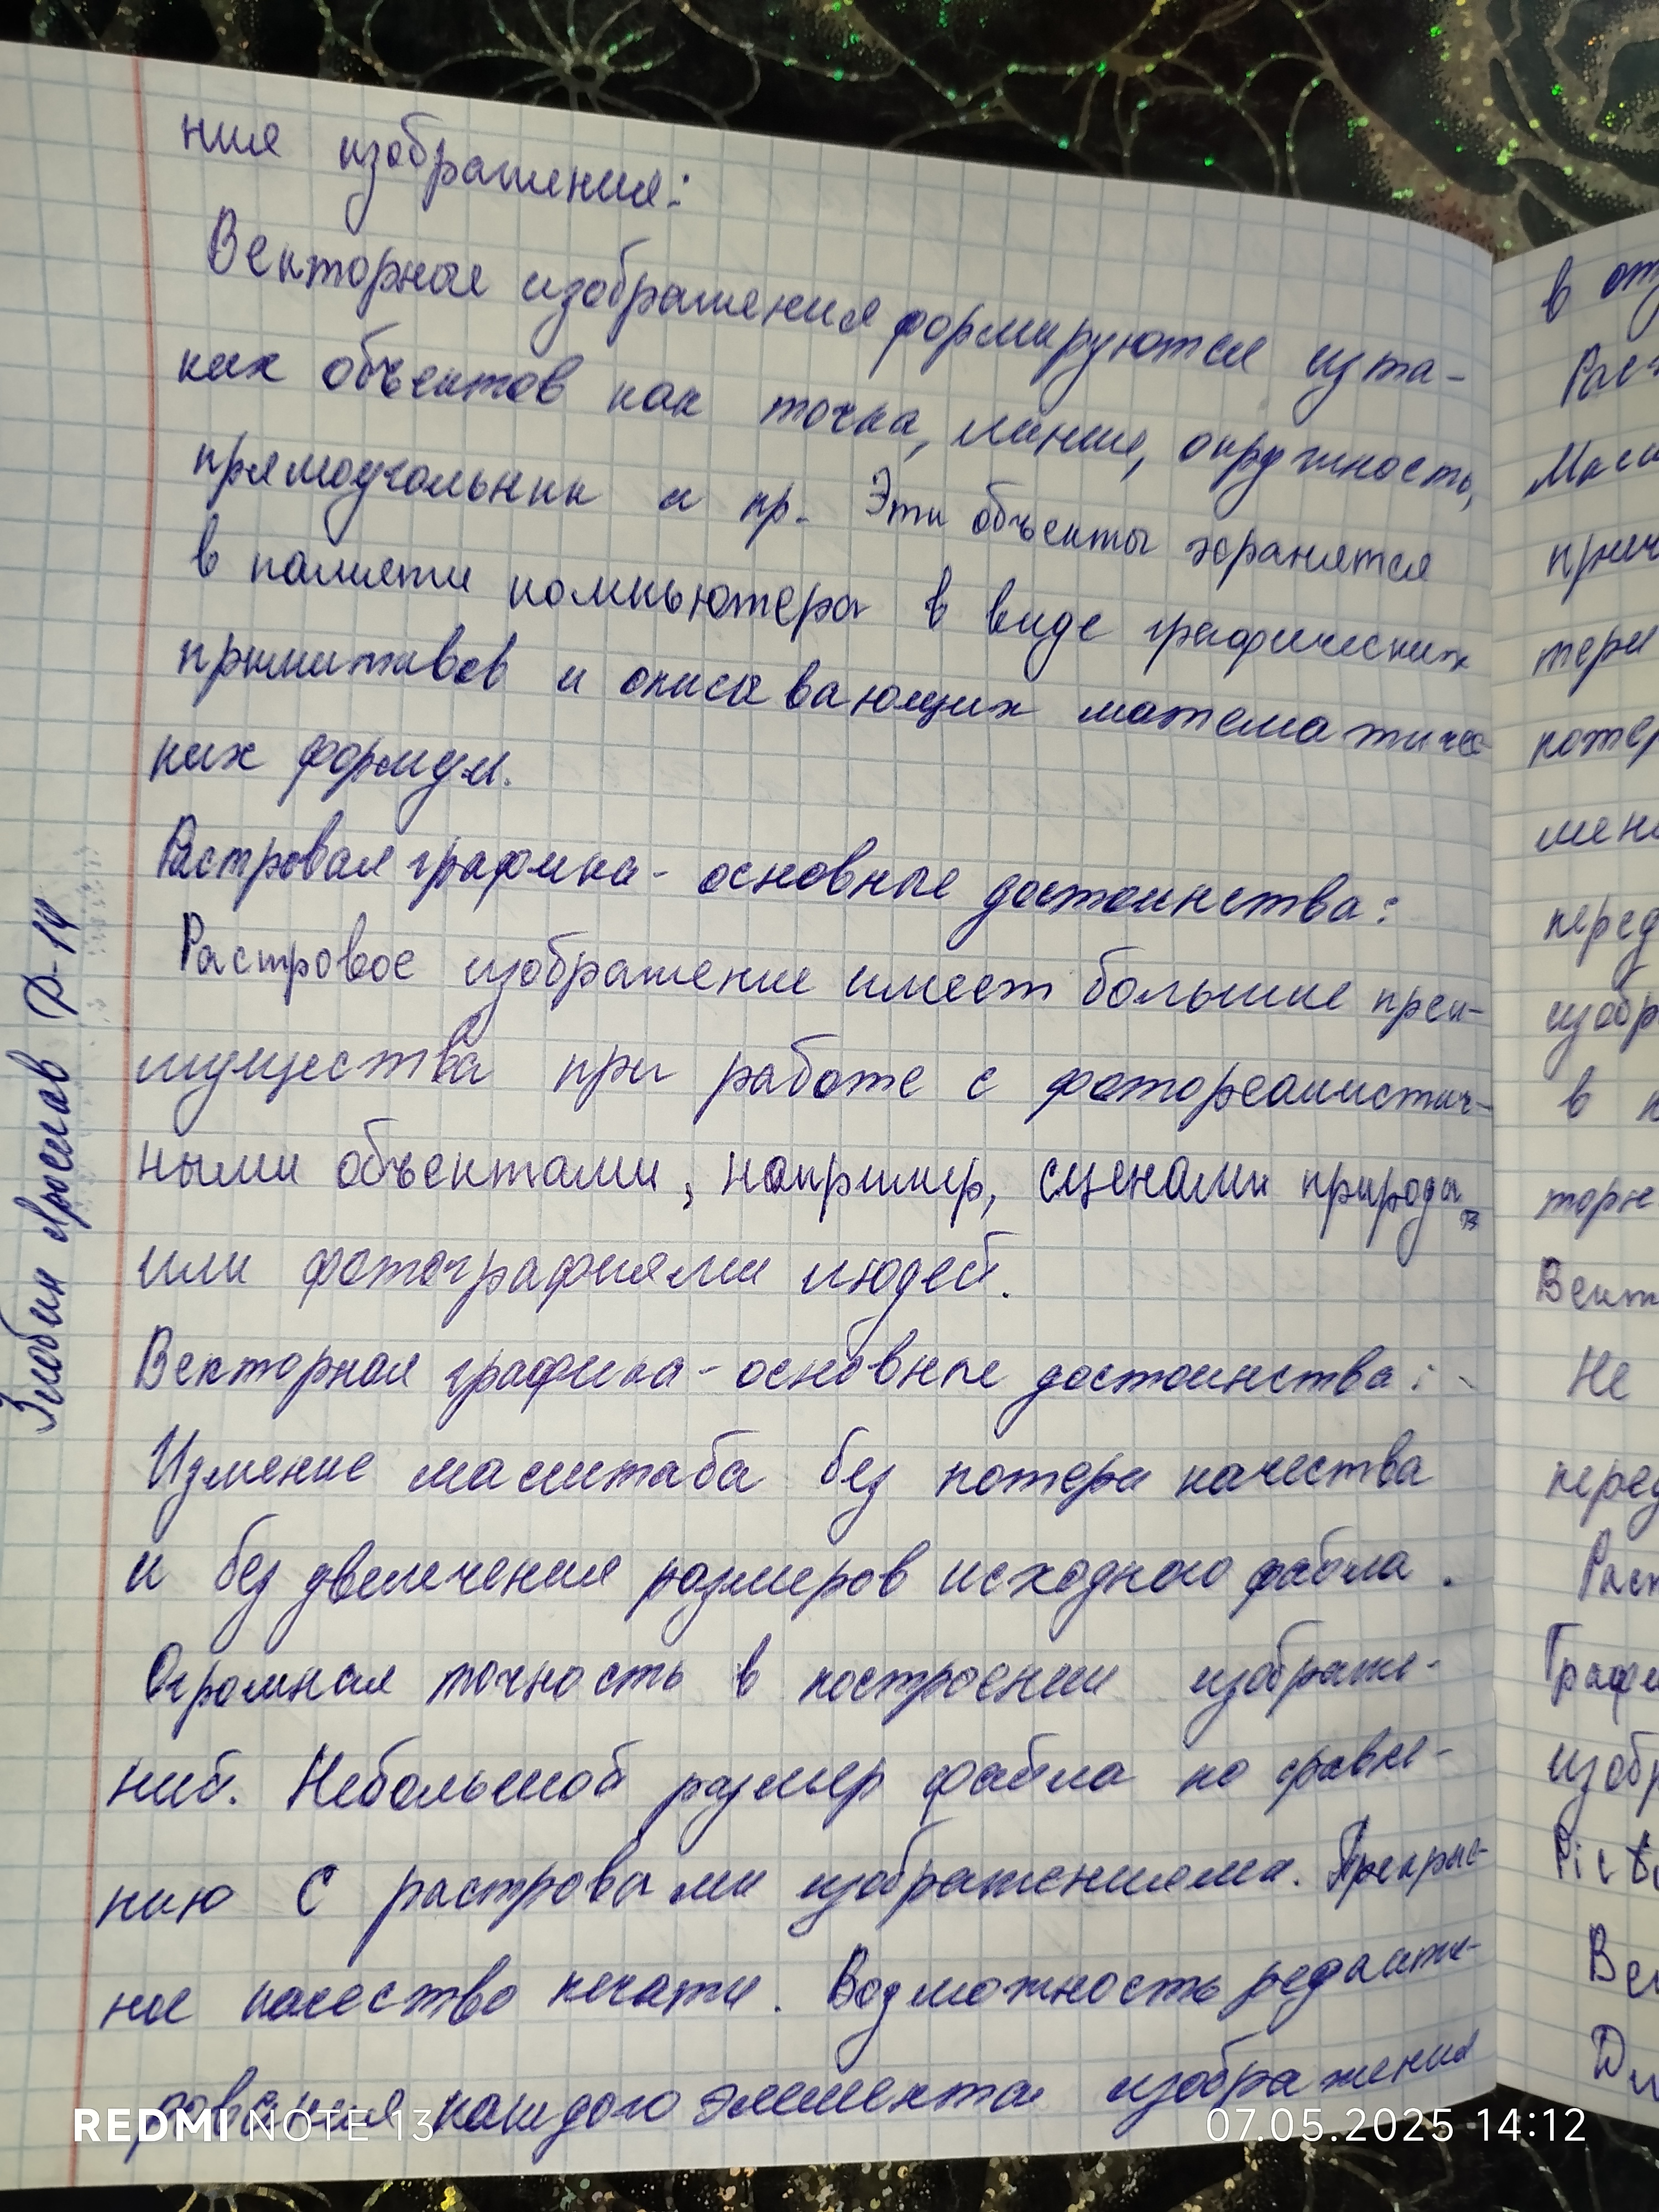 ния изображения:
Векторные изображения формируются из та-
ких объектов как точка, линия, окружность,
прямоугольник и пр. Эти объекты хранятся
в памяти компьютера в виде графических
примитивов и описывающих математичес
ких формул.
Растровая графика - основные достоинства:
Растровое изображение имеет большие преи-
мущества при работе с фотореалистич-
ными объектами, например, сценами природы
или фотографиями людей.
Векторная графика - основные достоинства:
Измение масштаба без потери качества
и без увеличения размеров исходного файла.
Огромная точность в построении изображе-
ний. Небольшой размер файла по сравне-
нию с растровыми изображениями. Прекрас-
ное качество печати. Возможность редакти-
рования каждого элемента изображения
Злобин Ярослав Р-14
в от
Рас
Мас
прич
тери
потер
мен
перед
изобр
в
торн
Вект
Не
перед
Раст
Графи
изобр
Pict
Ве
REDMI NOTE 13
07.05.2025 14:12